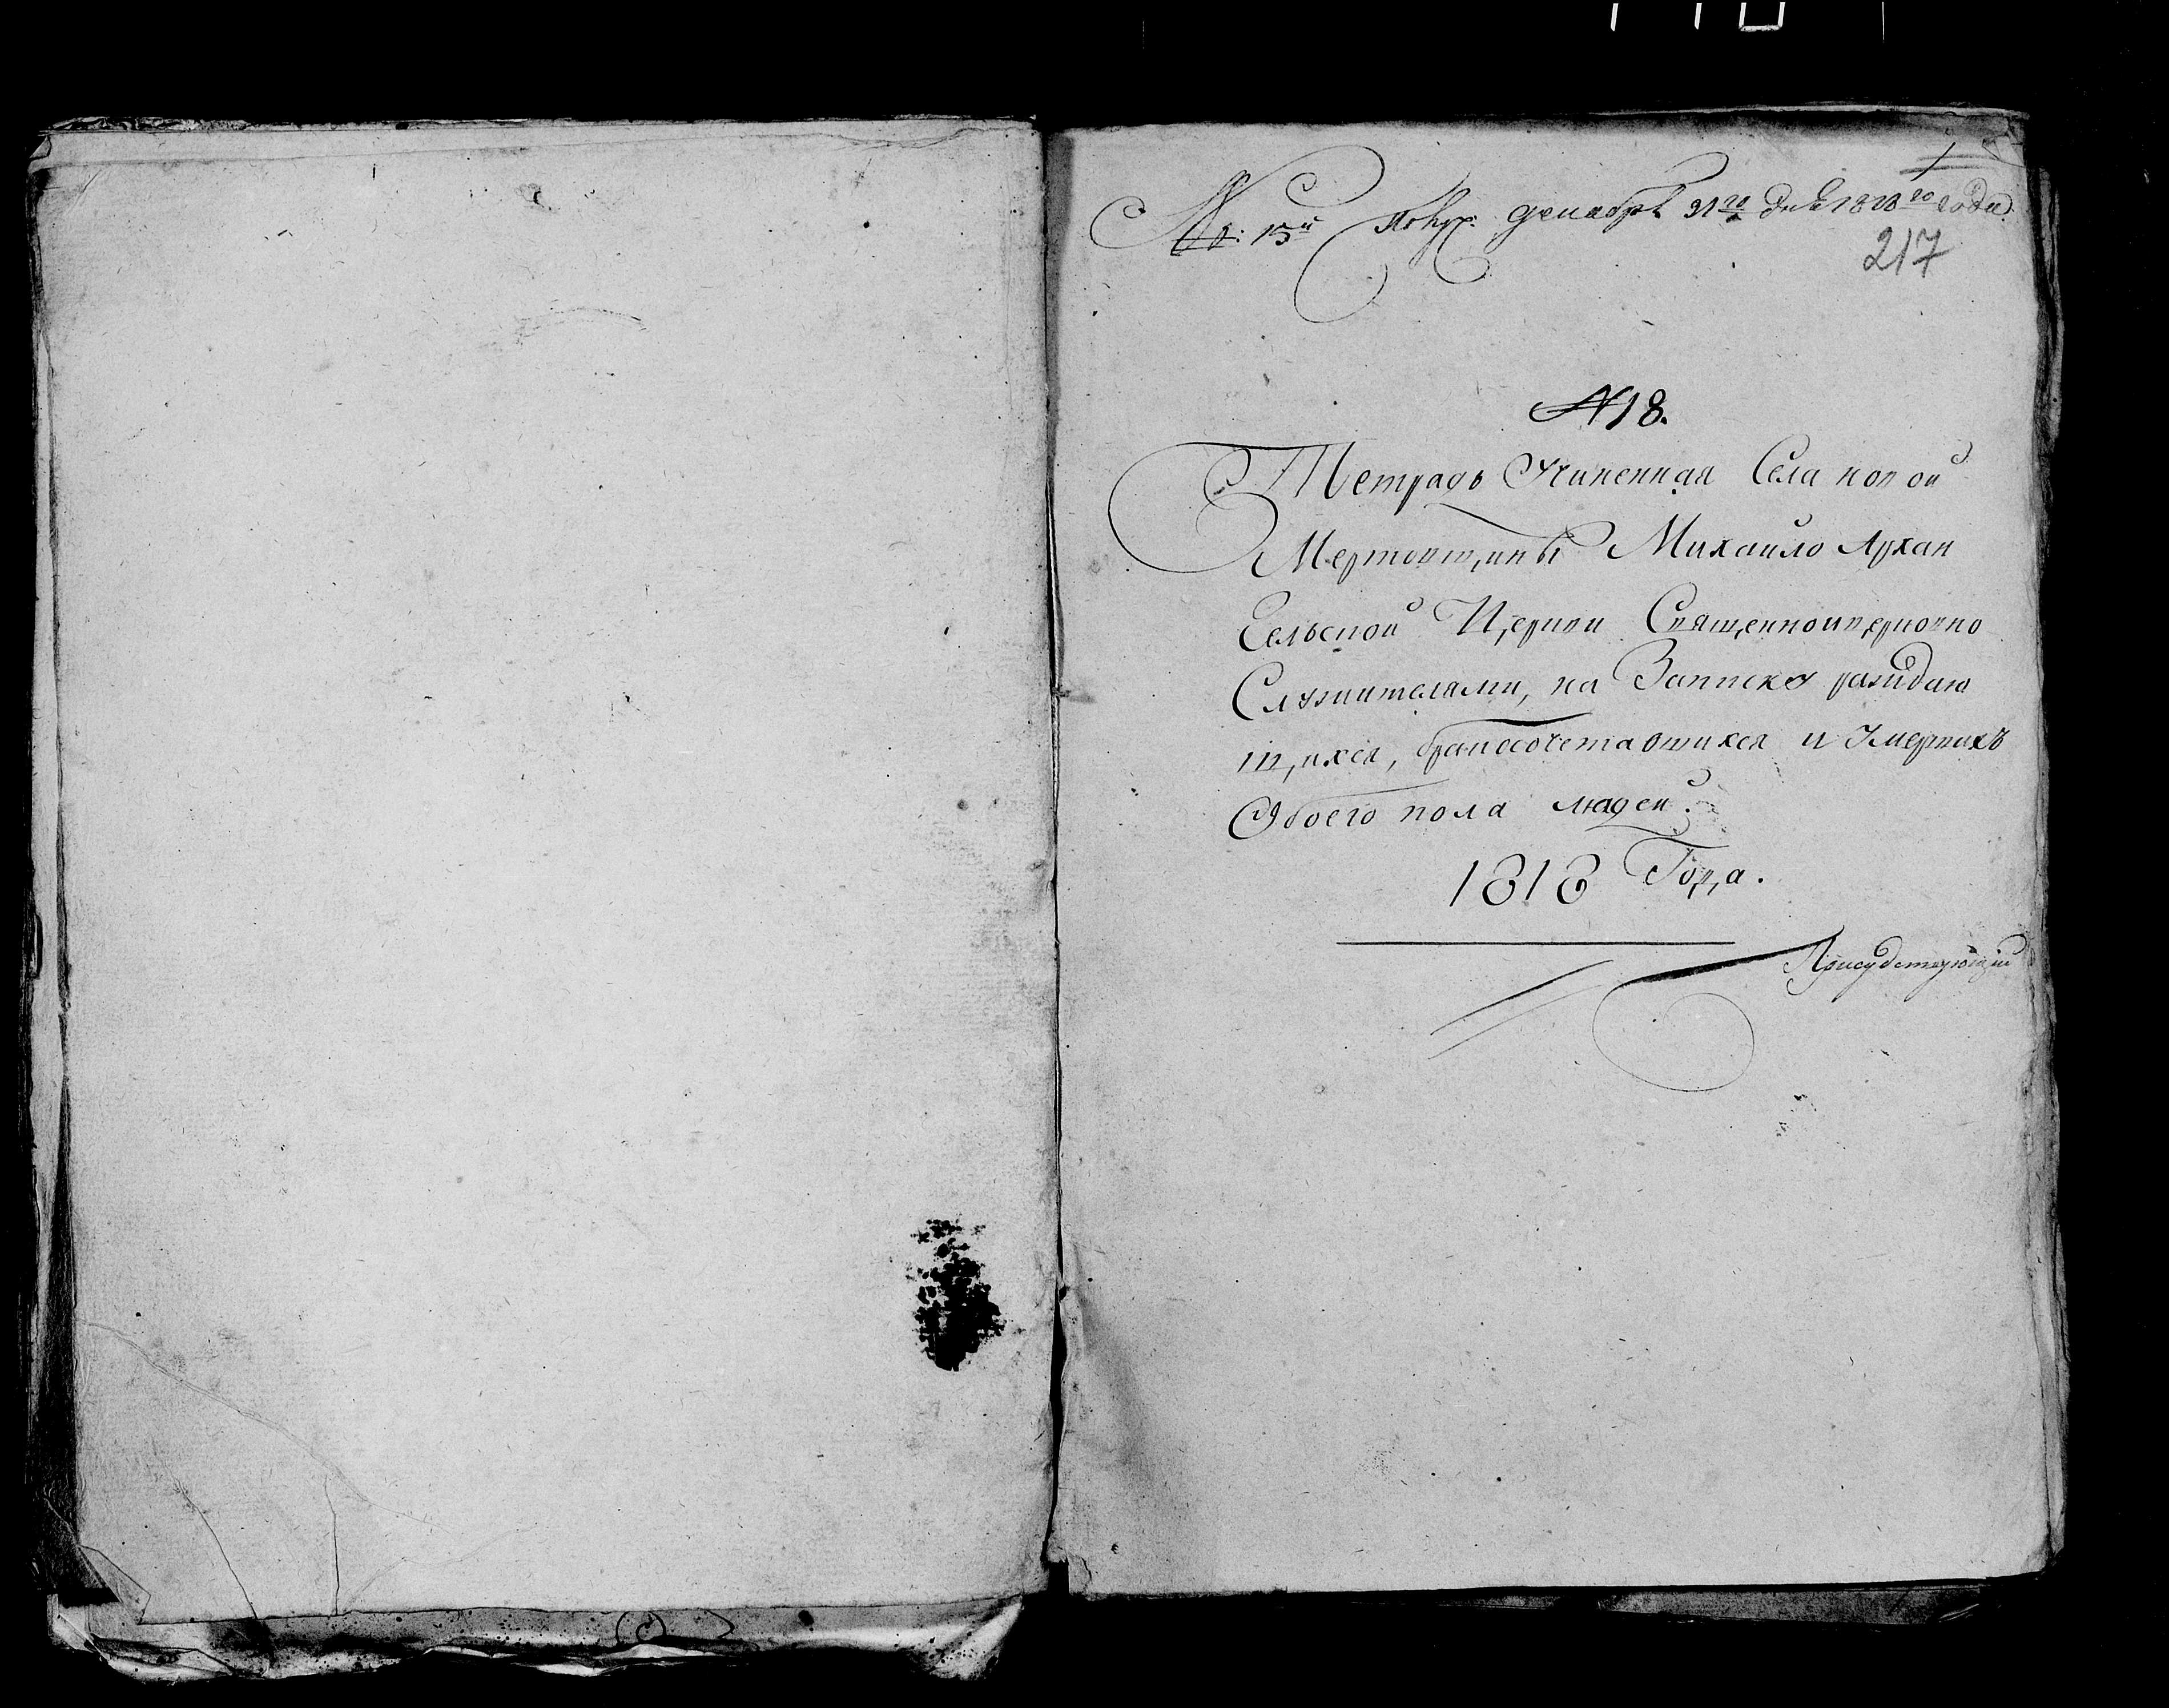 1
№: 15й Получ: декабря 31го дня 1818го года
217
№ 18.
Тетрадь Учиненная Села новой
Мертовщины Михаило Архан
Гельской Церкви Священноицерковно
Служителями, на Записку раждаю
щихся, бракосочетавшихся и Умерших
Обоего пола людей.
1818 Года.
Присудствующий